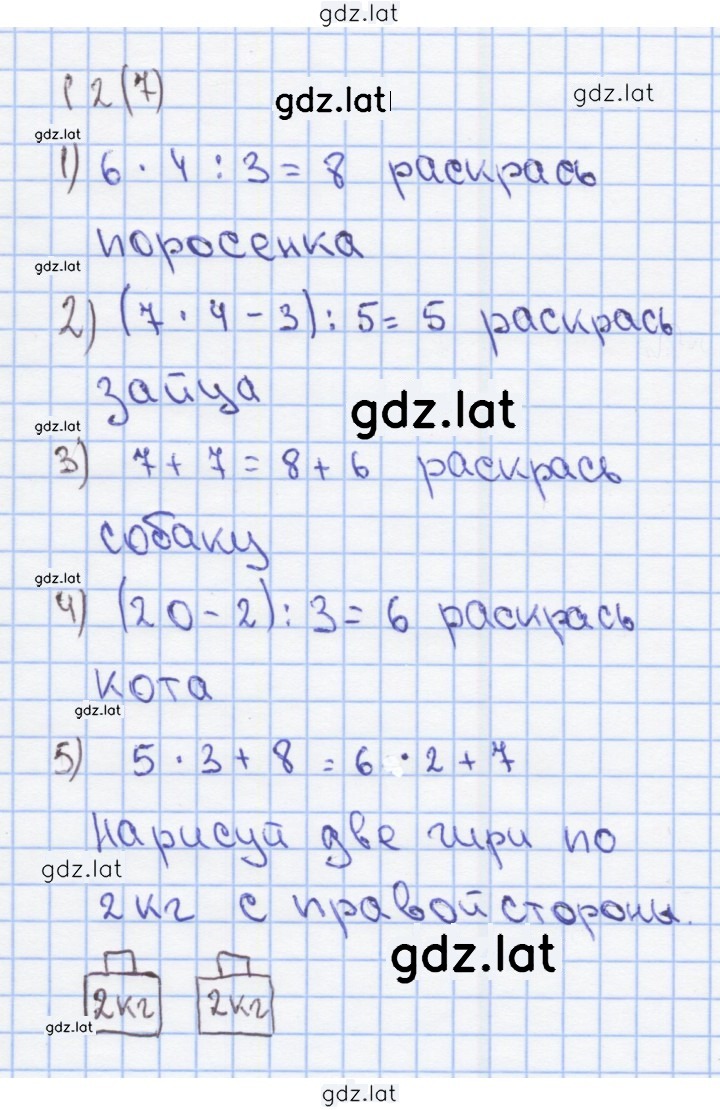 gdz.lat
р 2(7)
gdz.lat
gdz.lat
gdz.lat
1) 6 · 4 : 3 = 8 раскрась
поросенка
gdz.lat
2) (7 · 4 - 3) : 5 = 5 раскрась
зайца
gdz.lat
gdz.lat
3) 7 + 7 = 8 + 6 раскрась
собаку
gdz.lat
4) (20 - 2) : 3 = 6 раскрась
кота
gdz.lat
5) 5 · 3 + 8 = 6 · 2 + 7
Нарисуй две гири по
gdz.lat
2 кг с правой стороны.
gdz.lat
2 кг 2 кг
gdz.lat
gdz.lat